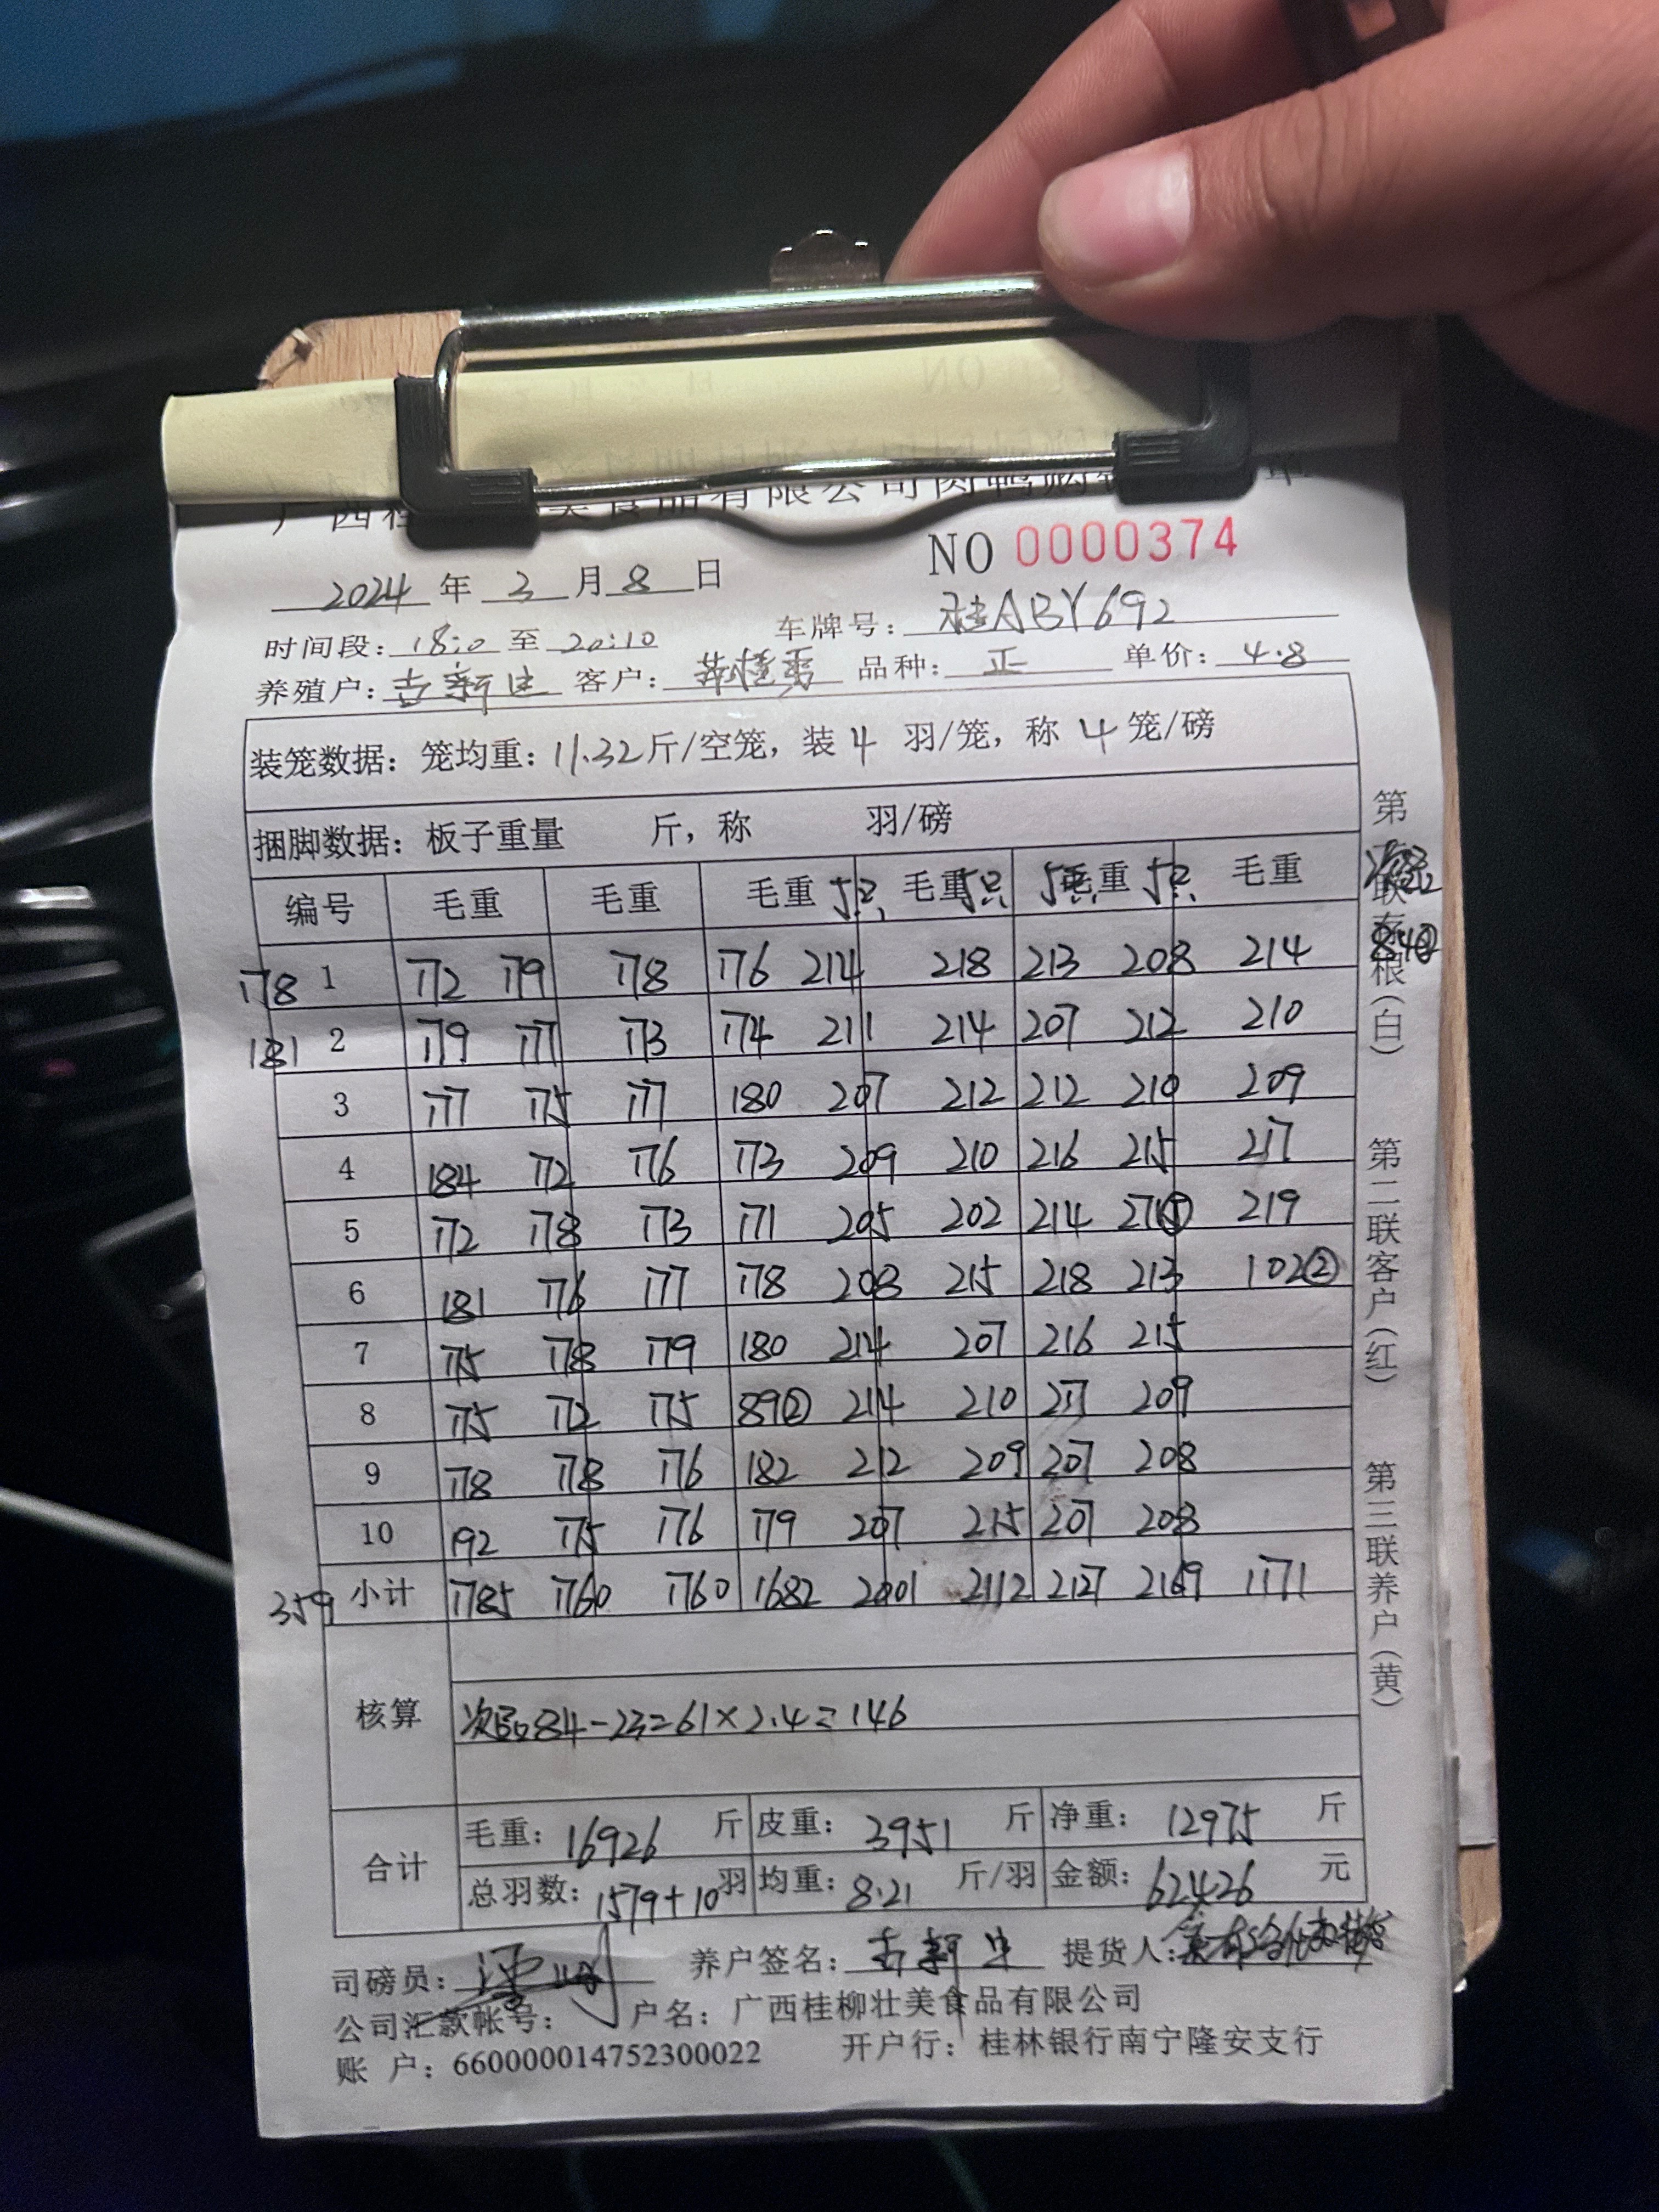 食品有限公司肉鸭购
单
NO 0000374
2024 年 3 月 8 日
时间段: 18:0 至 20:10 车牌号: 桂ABY692
养殖户: 客户: 品种: 正 单价: 4.8
装笼数据: 笼均重: 11.32斤/空笼, 装 4 羽/笼, 称 4 笼/磅
捆脚数据: 板子重量 斤, 称 羽/磅
编号 毛重 毛重 毛重 5只 毛重 5只 5只 毛重 5只 毛重
178 1 172 179 178 176 214 218 213 208 214
181 2 179 177 173 174 211 214 207 212 210
3 177 175 177 180 207 212 212 210 209
4 184 172 176 173 209 210 216 215 217
5 172 178 173 171 205 202 214 271⑤ 219
6 181 176 177 178 208 215 218 213 102②
7 175 178 179 180 214 207 216 215
8 175 172 175 89② 214 210 217 209
9 178 178 176 182 212 209 207 208
10 192 175 176 179 207 215 207 208
359 小计 1785 1760 1760 1682 2001 2112 2127 2169 1171
核算
次品84-23=61×2.4=146
合计
毛重: 16926 斤 皮重: 3951 斤 净重: 12975 斤
总羽数: 1579+10 羽 均重: 8.21 斤/羽 金额: 62426 元
司磅员: 养户签名: 提货人:
公司汇款帐号: 户名: 广西桂柳壮美食品有限公司
账 户: 660000014752300022 开户行: 桂林银行南宁隆安支行
第
联
存
根
(白)
第二联客户(红)
第三联养户(黄)